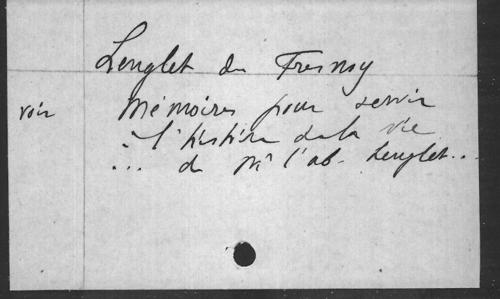 Lenglet du Fresnoy
voir Mémoires pour servir
à l'histoire de la vie
... de Mr l'ab. Lenglet...